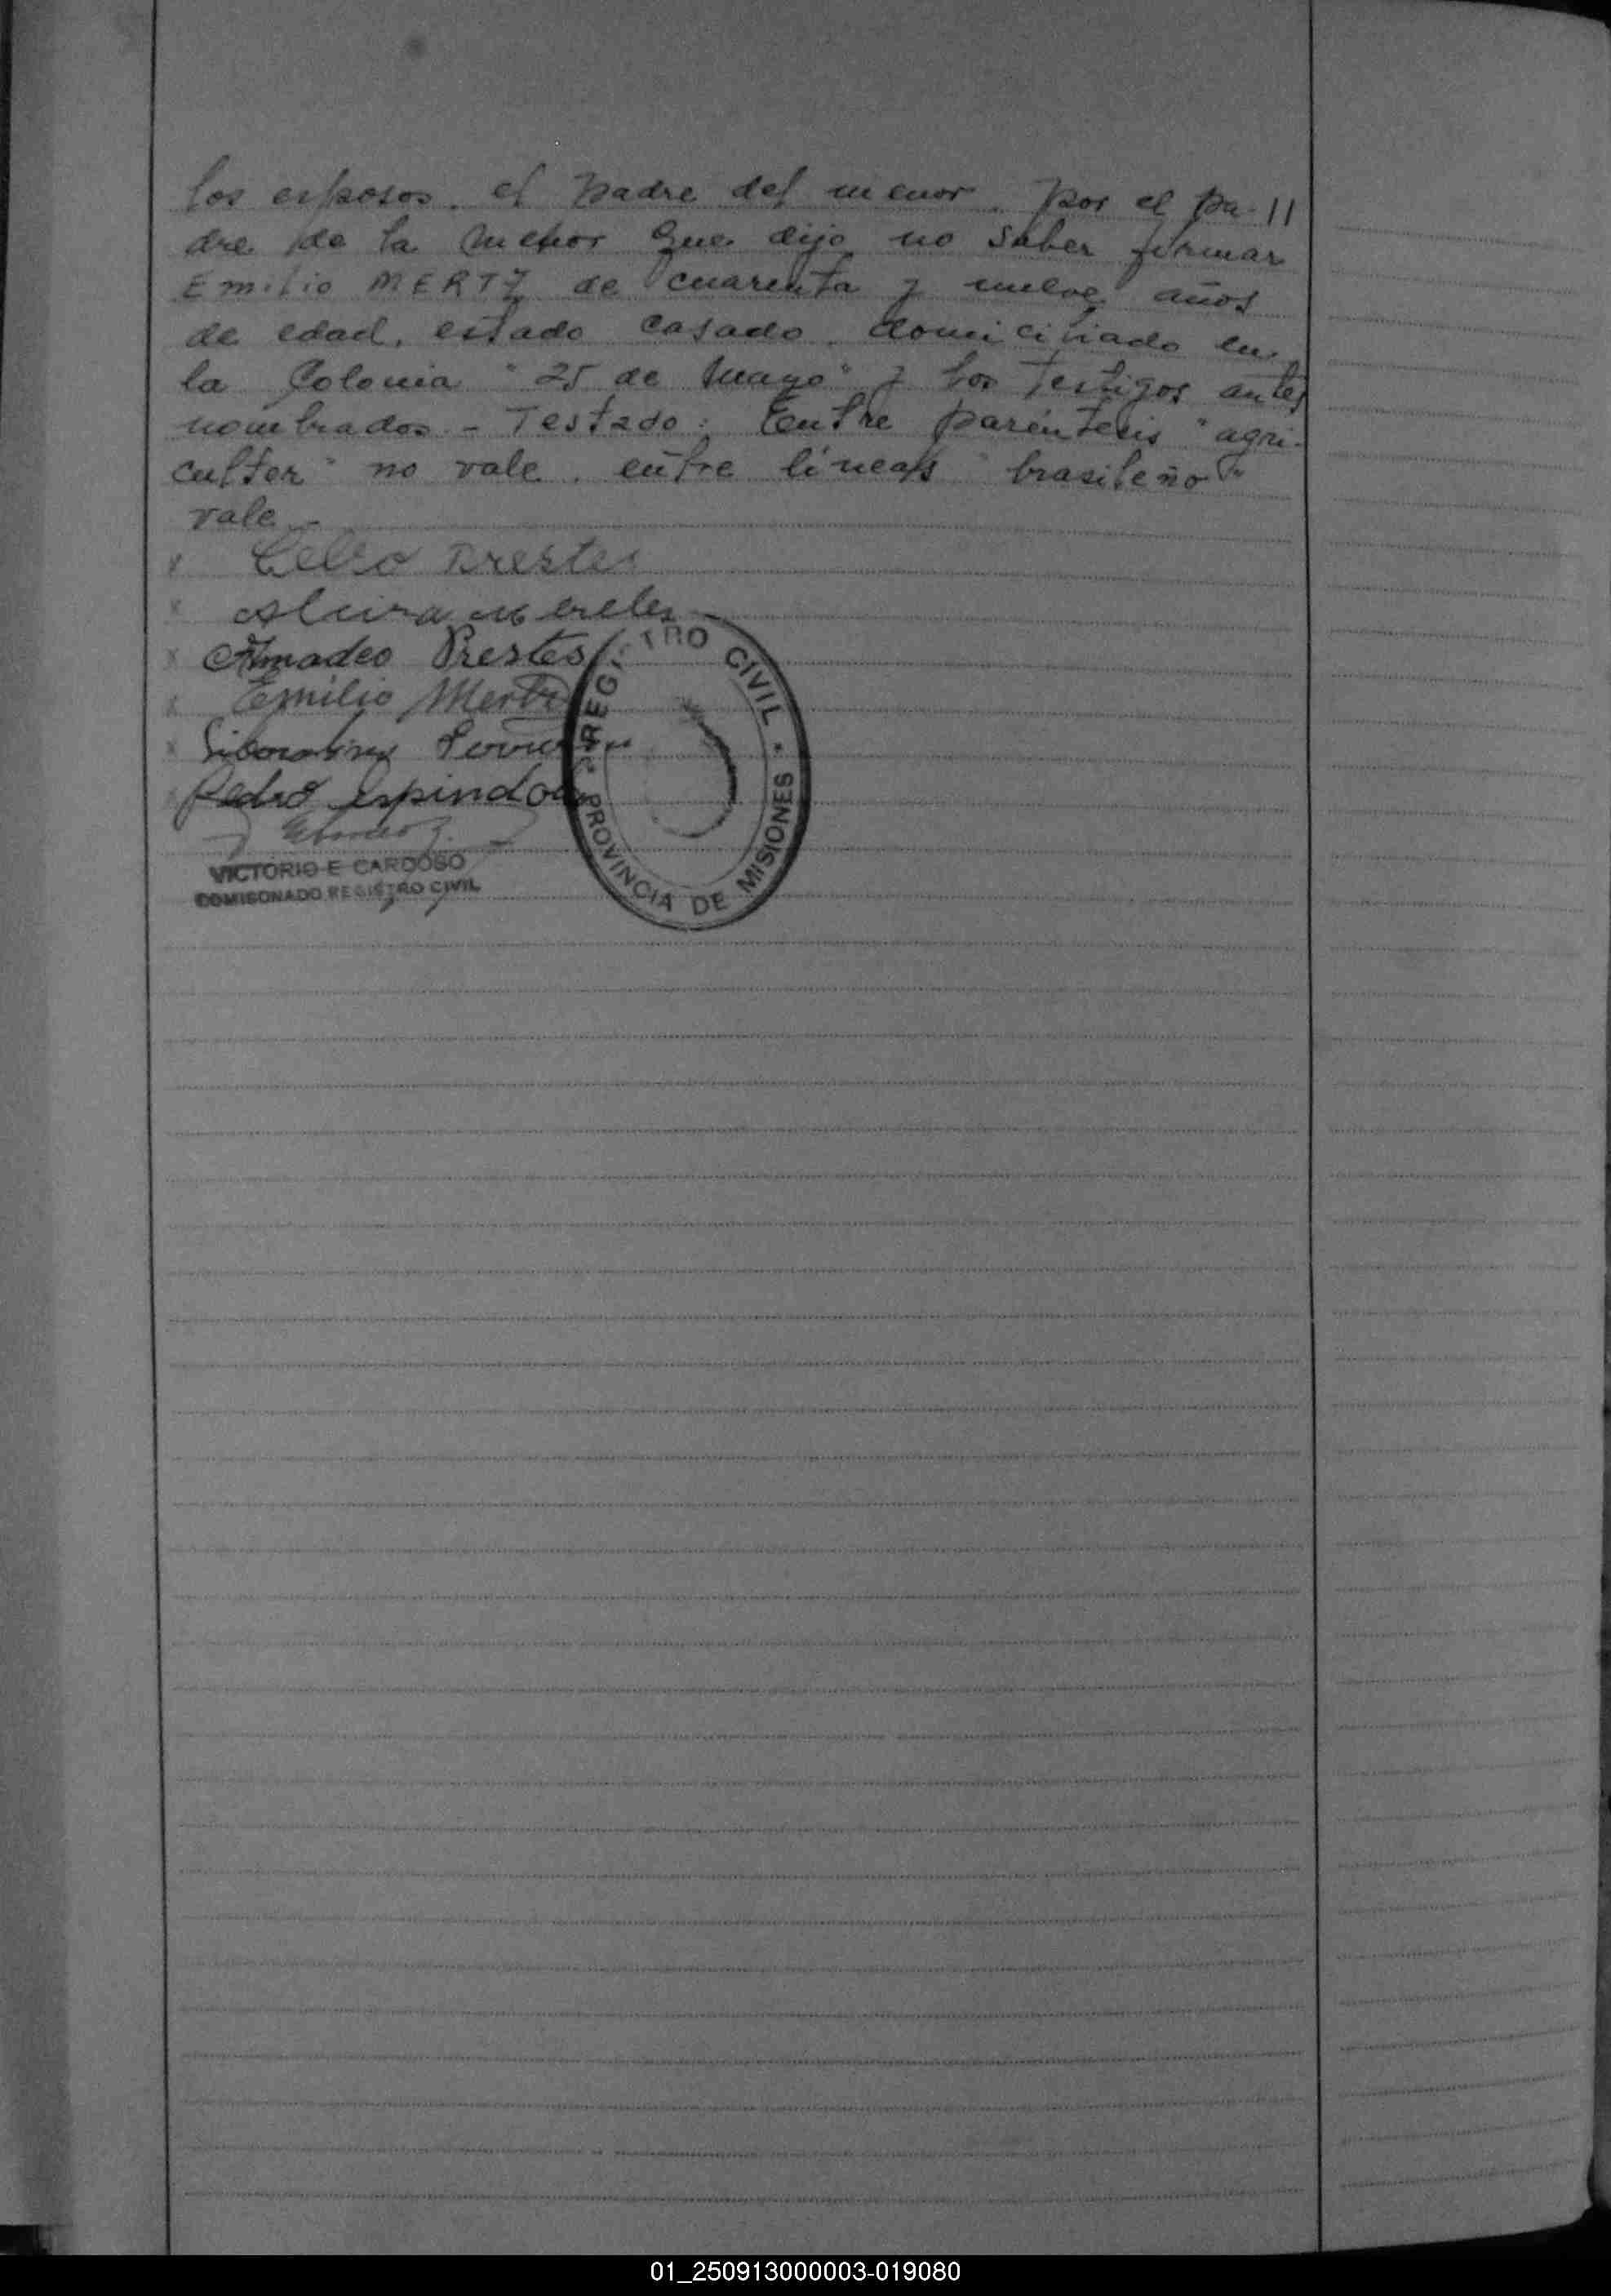 los esposos. el padre del menor. por el pa-//
dre de la menor que dijo no saber firmar
Emilio MERTZ de cuarenta y nueve años
de edad, estado casado. domiciliado en
la Colonia "25 de Mayo" y los testigos antes
nombrados - Testado: Entre paréntesis "agri-
cultor" no vale. entre líneas "brasileño"
vale -
x Celso Prestes
x Alcira Mereles
x Amadeo Prestes
x Emilio Mertz
x
Pedro Espindola
VICTORIO E CARDOSO
COMISONADO REGISTRO CIVIL
REGISTRO CIVIL
PROVINCIA DE MISIONES
01_250913000003-019080